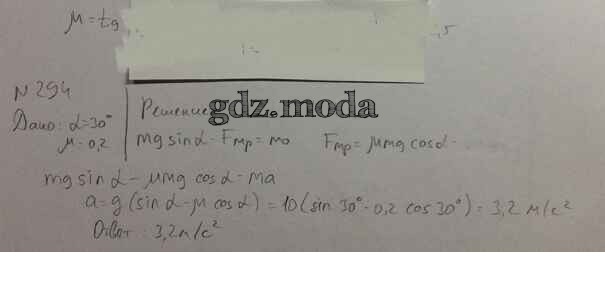 μ = tg
,5
N 294
Дано: α=30°
μ=0,2
Решение
gdz.moda
mg sin α - Fтр = ma Fтр = μmg cos α
mg sin α - μmg cos α = ma
a = g (sin α - μ cos α) = 10 (sin 30° - 0,2 cos 30°) = 3,2 м/с²
Ответ: 3,2 м/с²